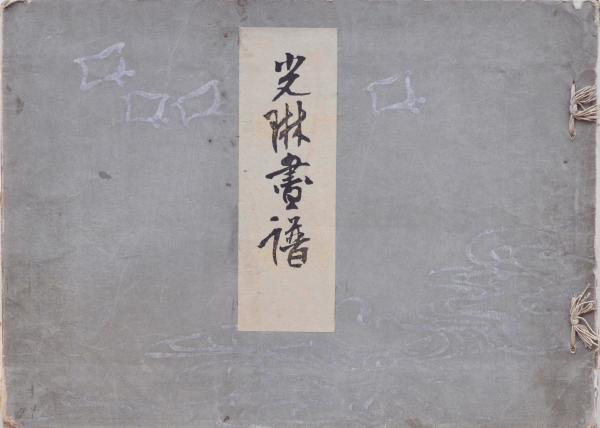 光琳畫譜